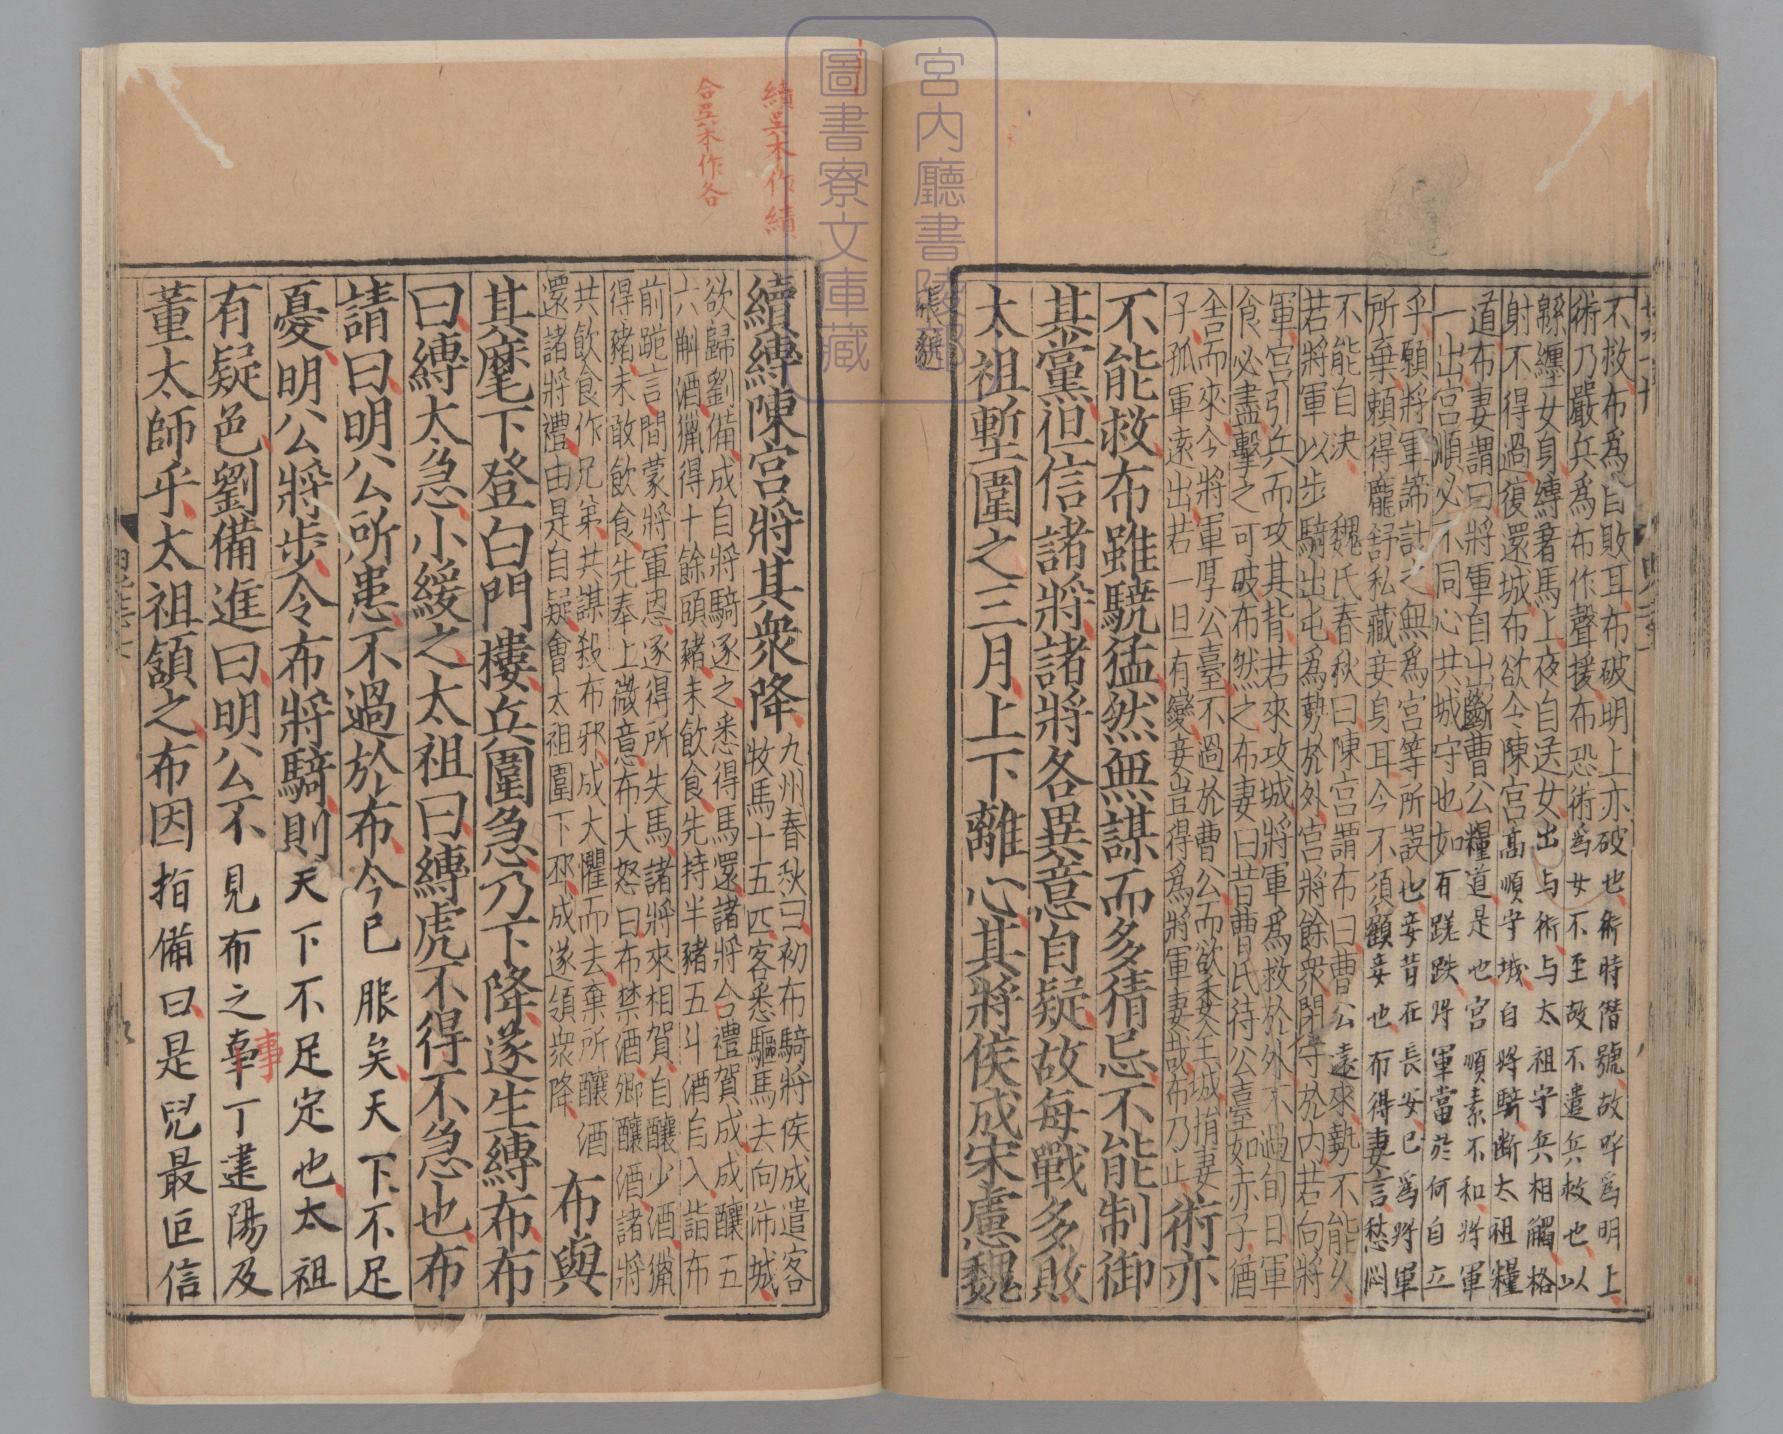 不救布爲自敗耳布破明上亦破也術時僭號故呼爲明上
術乃嚴兵爲布作聲援布恐術爲女不至故不遣兵救也以
緜纏女身縛著馬上夜自送女出与術与太祖守兵相觸格
射不得過復還城布欲令陳宮高順守城自將騎斷太祖糧
道布妻謂曰將軍自出斷曹公糧道是也宮順素不和將軍
一出宮順必不同心共城守也如有蹉跌將軍當於何自立
乎願將軍諦計之無爲宮等所誤也妾昔在長安已爲將軍
所棄賴得龐舒私藏妾身耳今不須顧妾也布得妻言愁悶
不能自決　魏氏春秋曰陳宮謂布曰曹公遠來勢不能久
若將軍以步騎出屯爲勢於外宮將餘衆閉守於内若向將
軍宮引兵而攻其背若來攻城將軍爲救於外不過旬日軍
食必盡擊之可破布然之布妻曰昔曹氏待公臺如赤子猶
舍而來今將軍厚公臺不過於曹公而欲委全城捐妻
子孤軍遠出若一旦有變妾豈得爲將軍妻哉布乃止
術亦
不能救布雖驍猛然無謀而多猜忌不能制御
其黨但信諸將諸將各異意自疑故每戰多敗
太祖塹圍之三月上下離心其將侯成宋憲魏
續縛陳宮將其衆降
九州春秋曰初布騎將侯成遣客
牧馬十五匹客悉驅馬去向沛城
欲歸劉備成自將騎逐之悉得馬還諸將合禮賀成成釀五
六斛酒獵得十餘頭豬未飲食先持半豬五斗酒自入詣布
前跪言間蒙將軍恩逐得所失馬諸將來相賀自釀少酒獵
得豬未敢飲食先奉上微意布大怒曰布禁酒卿釀酒諸將
共飲食作兄弟共謀殺布邪成大懼而去棄所釀酒
還諸將禮由是自疑會太祖圍下邳成遂領衆降
布與
其麾下登白門樓兵圍急乃下降遂生縛布布
曰縛太急小緩之太祖曰縛虎不得不急也布
請曰明公所患不過於布今已服矣天下不足
憂明公將步令布將騎則天下不足定也太祖
有疑色劉備進曰明公不見布之事丁建陽及
董太師乎太祖頷之布因指備曰是兒最叵信
張邈
續吳本作績
合吳本作各
事
宮内廳書陵部
圖書寮文庫藏